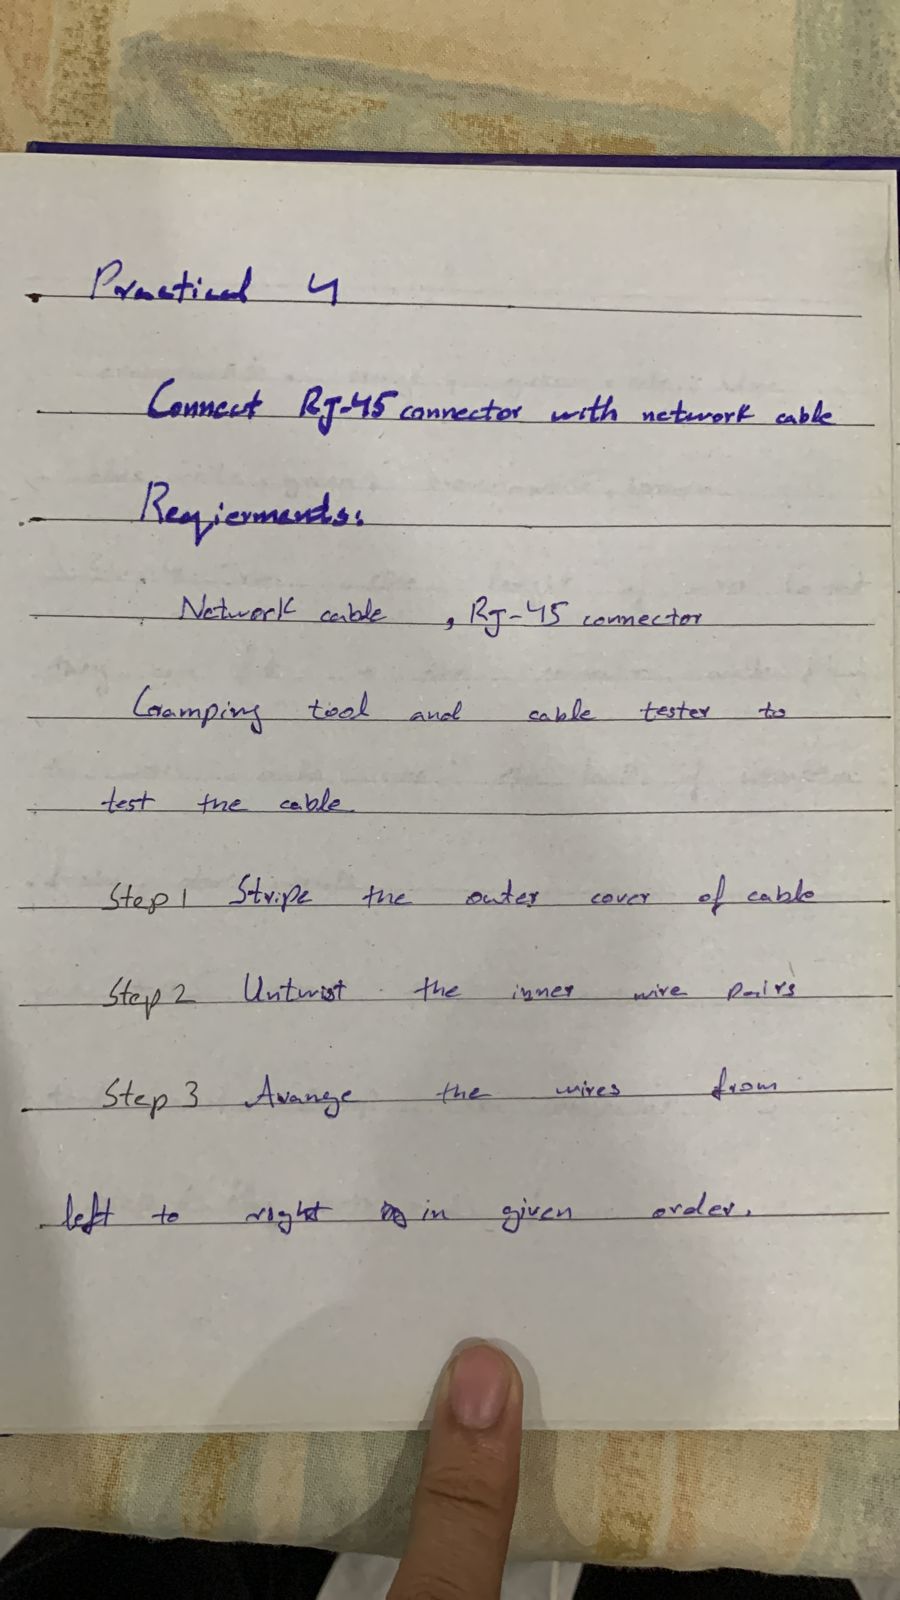 Practical 4
Connect RJ-45 connector with network cable
Reqierments:
Network cable , RJ-45 connector
Cramping tool and cable tester to
test the cable
Step 1 Stripe the outer cover of cable
Step 2 Untwist the inner wire pairs
Step 3 Arange the wires from
left to right in given order.